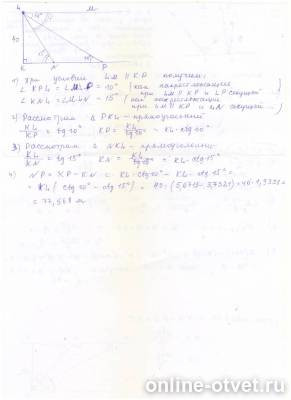 L M
10°
15°
40
15° 10°
K N P
1) При условии LM || KP получим:
∠KPL = ∠MLP = 10° (как накрест лежащие при LM || KP и LP секущей)
∠KNL = ∠MLN = 15° (как накрест лежащие при LM || KP и LN секущей)
2) Рассмотрим Δ PKL - прямоугольный
KL/KP = tg 10° KP = KL/tg 10° = KL · ctg 10°
3) Рассмотрим Δ NKL - прямоугольный
KL/KN = tg 15° KN = KL/tg 15° = KL · ctg 15°
4) NP = KP - KN = KL · ctg 10° - KL · ctg 15° =
= KL (ctg 10° - ctg 15°) = 40 · (5,6713 - 3,7321) = 40 · 1,9392 =
= 77,568 м
online-otvet.ru